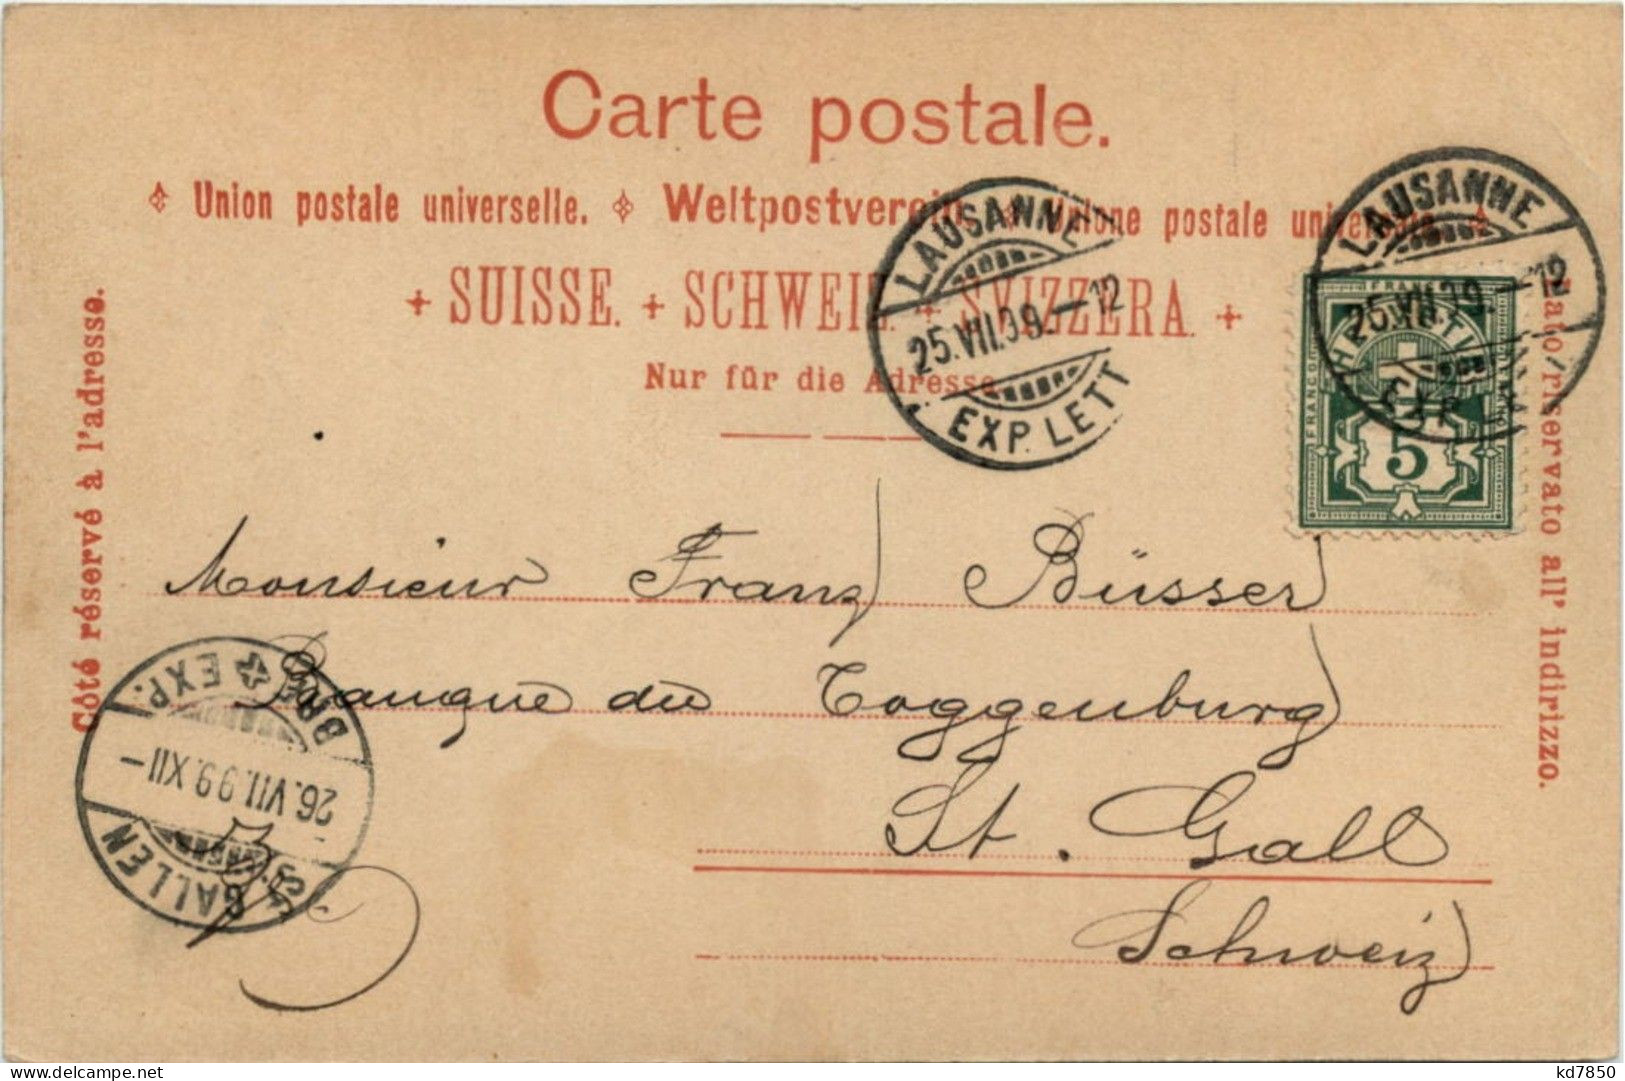 Carte postale.
Union postale universelle. Weltpostverein. Unione postale universale.
+ SUISSE. + SCHWEIZ. + SVIZZERA. +
Nur für die Adresse.
Côté réservé à l'adresse.
Lato riservato all' indirizzo.
LAUSANNE
25.VII.99.—12
EXP. LETT
LAUSANNE
25.VII.99.—12
EXP. L
FRANCO
HELVETIA
FRANCO
5
Monsieur Franz Büsser
Banque du Toggenburg
St. Gall
Schweiz
ST. GALLEN
26.VII.99.XII—
BRF. EXP.
delcampe.net
kd7850